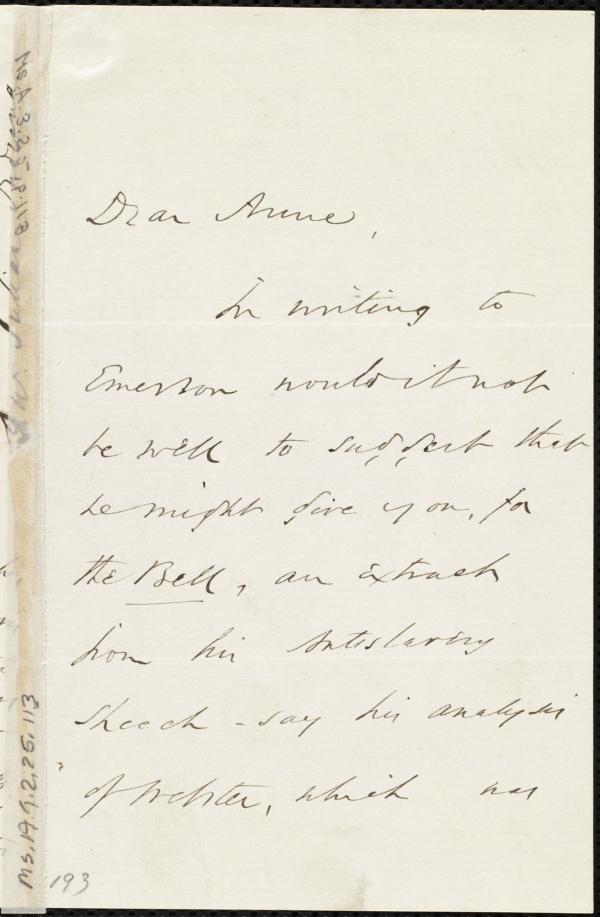 Dear Anne,
In writing to
Emerson would it not
be well to suggest that
he might give you, for
the Bell, an extract
from his Antislavery
Speech - say his analysis
of Webster, which was
193
Ms.A.9.2.25.113